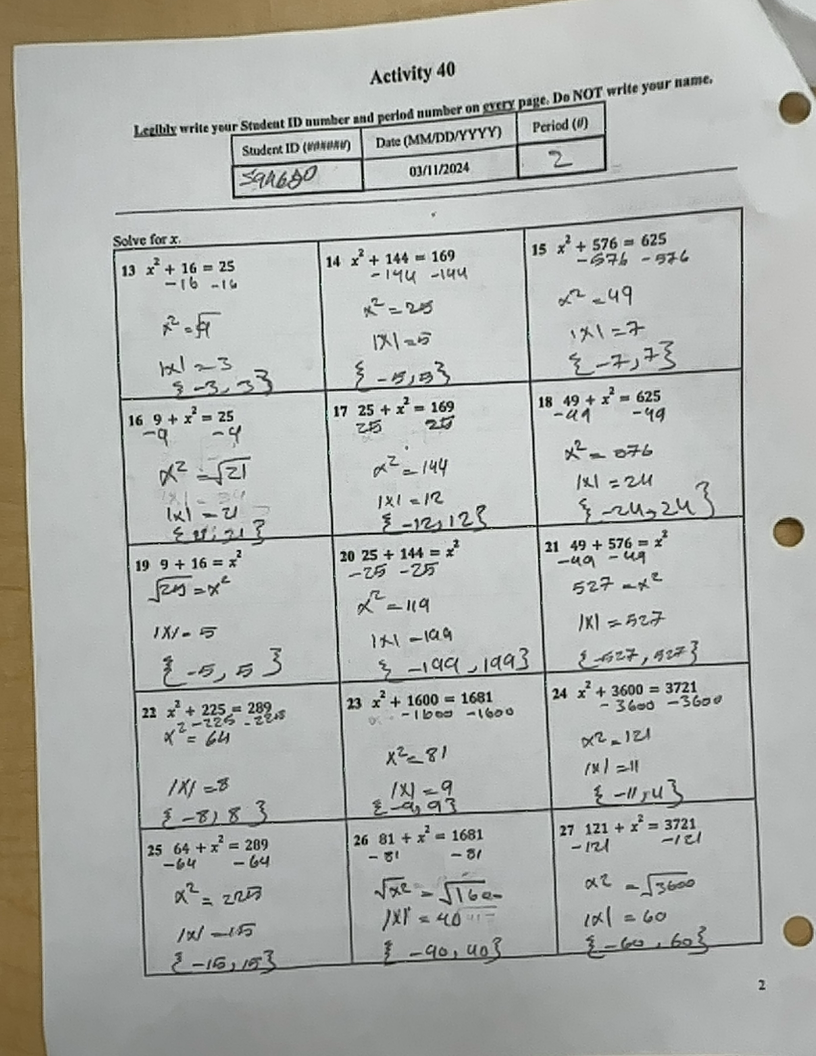 Activity 40
Legibly write your Student ID number and period number on every page. Do NOT write your name.
Student ID (######) Date (MM/DD/YYYY) Period (#)
03/11/2024 2
Solve for x.
13 x² + 16 = 25
-16 -16
x² = √9
|x| = 3
{-3, 3}
14 x² + 144 = 169
-144 -144
x² = 25
|x| = 5
{-5, 5}
15 x² + 576 = 625
-576 -576
x² = 49
|x| = 7
{-7, 7}
16 9 + x² = 25
-9 -4
x² = √21
|x| = 21
17 25 + x² = 169
25 25
x² = 144
|x| = 12
{-12, 12}
18 49 + x² = 625
-49 -49
x² = 576
|x| = 24
{-24, 24}
19 9 + 16 = x²
√25 = x²
|x| = 5
{-5, 5}
20 25 + 144 = x²
-25 -25
x² = 119
|x| = 199
{-199, 199}
21 49 + 576 = x²
-49 -49
527 = x²
|x| = 527
{-527, 527}
22 x² + 225 = 289
-225 -225
x² = 64
|x| = 8
{-8, 8}
23 x² + 1600 = 1681
-1600 -1600
x² = 81
|x| = 9
{-9, 9}
24 x² + 3600 = 3721
-3600 -3600
x² = 121
|x| = 11
{-11, 11}
25 64 + x² = 289
-64 -64
x² = 225
|x| = 15
{-15, 15}
26 81 + x² = 1681
-81 -81
√x² = √1600
|x| = 40
{-40, 40}
27 121 + x² = 3721
-121 -121
x2 = √3600
|x| = 60
{-60, 60}
2